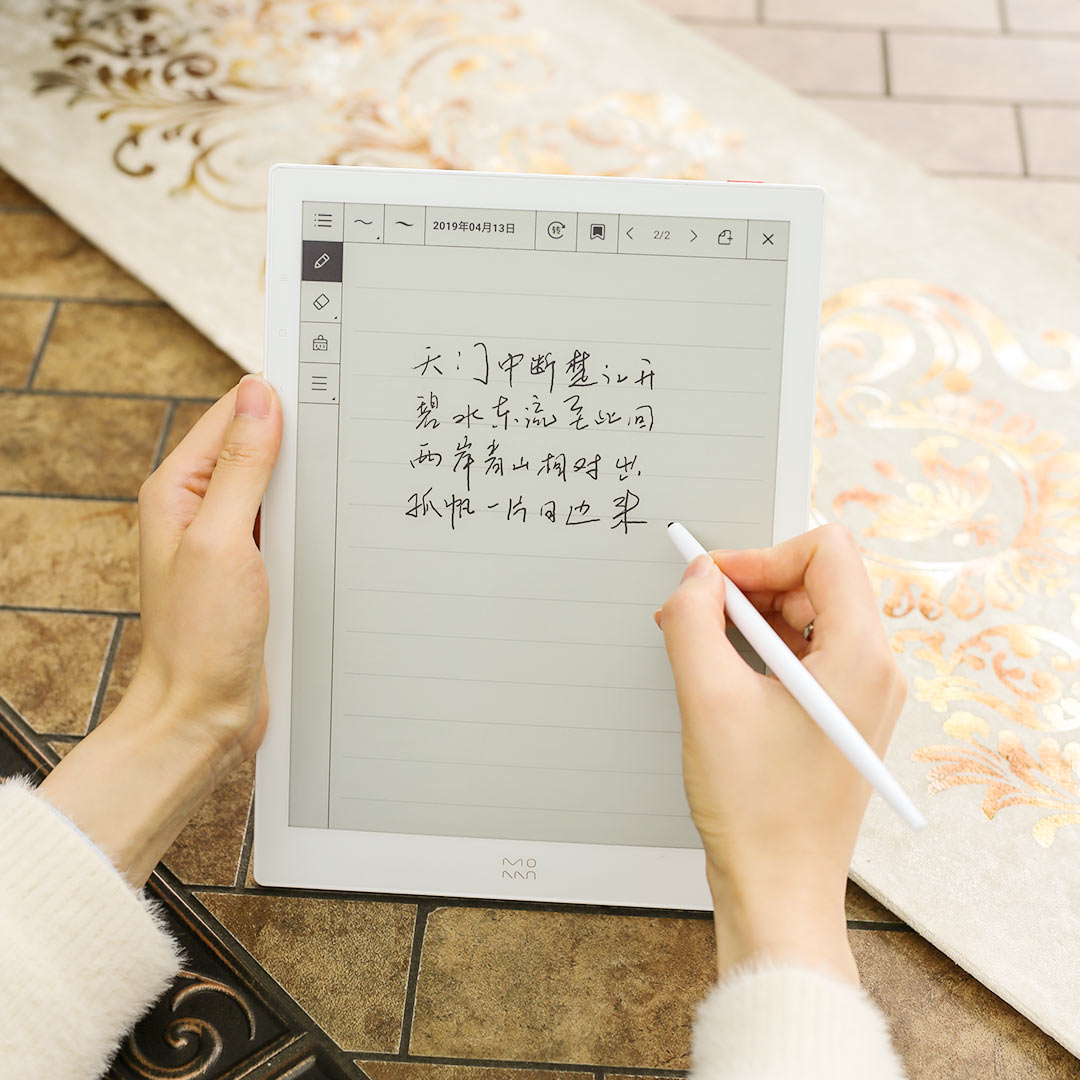 2019年04月13日 转 2/2
天门中断楚江开
碧水东流至此回
两岸青山相对出
孤帆一片日边来
MOAAN